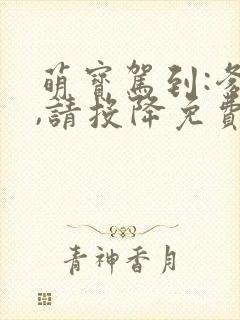 萌寶駕到:爹
,請投降免費
青神香月